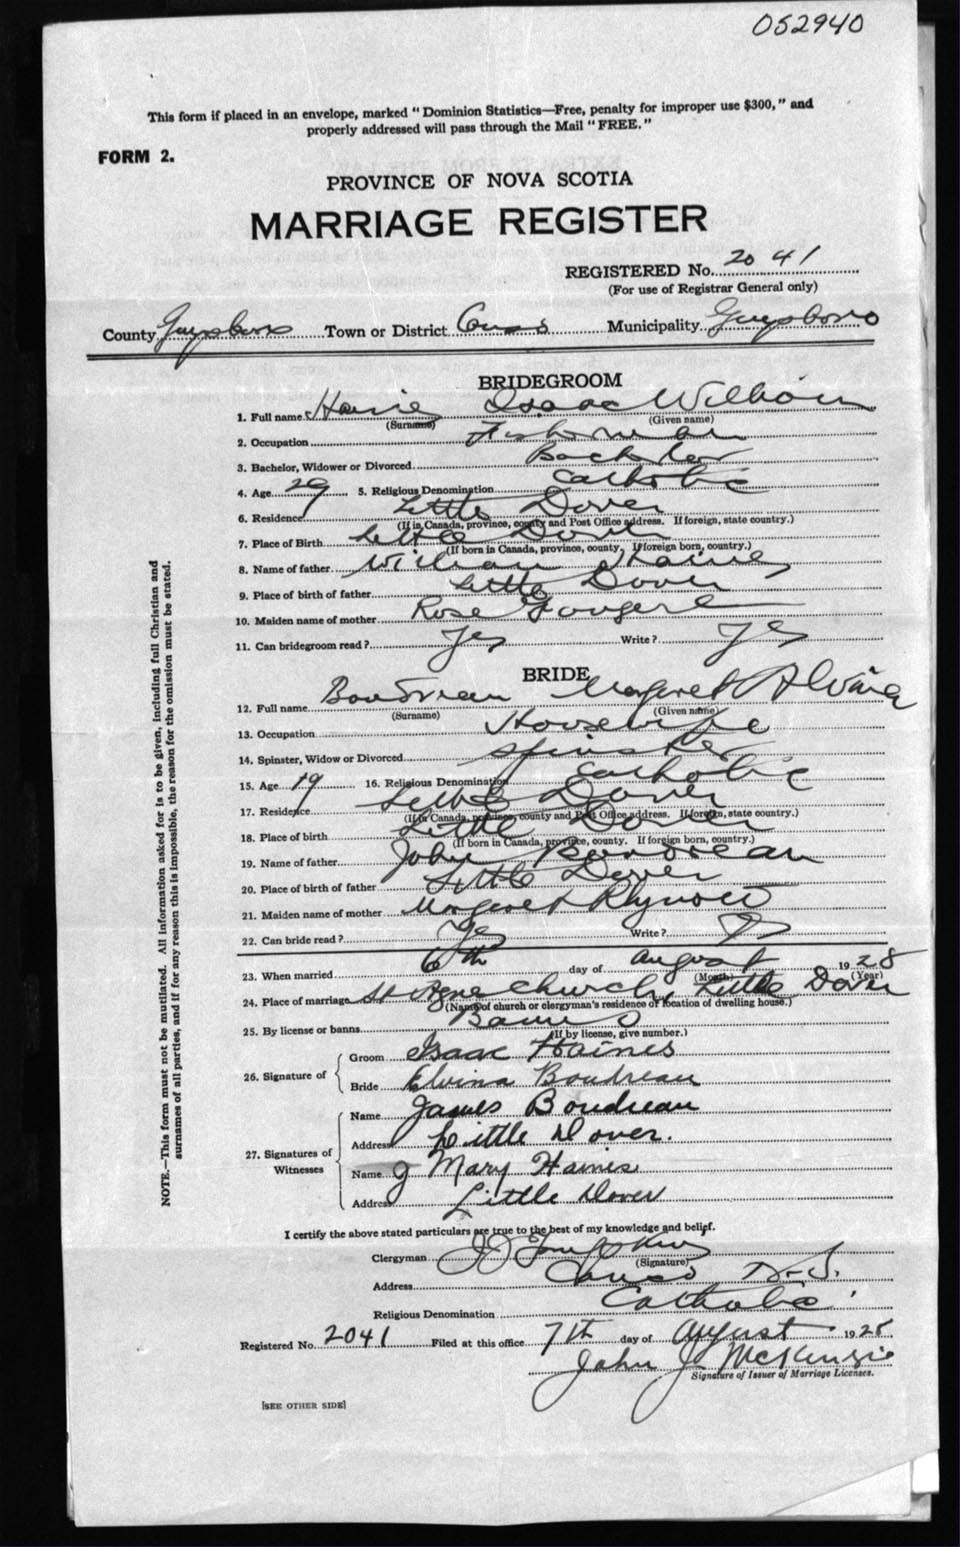 052940
This form if placed in an envelope, marked "Dominion Statistics—Free, penalty for improper use $300," and
properly addressed will pass through the Mail "FREE."
FORM 2.
PROVINCE OF NOVA SCOTIA
MARRIAGE REGISTER
REGISTERED No. 2041
(For use of Registrar General only)
County Guysboro Town or District Canso Municipality Guysboro
BRIDEGROOM
1. Full name Isaac William
(Surname) (Given name)
2. Occupation Fisherman
3. Bachelor, Widower or Divorced Bachelor
4. Age 29 5. Religious Denomination Catholic
6. Residence Little Dover
(If in Canada, province, county and Post Office address. If foreign, state country.)
7. Place of Birth Little Dover
(If born in Canada, province, county. If foreign born, country.)
8. Name of father William Haines
9. Place of birth of father Little Dover
10. Maiden name of mother Rose Fougere
11. Can bridegroom read? Yes Write? Yes
BRIDE
12. Full name Boudreau Margaret Alvina
(Surname) (Given name)
13. Occupation Housewife
14. Spinster, Widow or Divorced Spinster
15. Age 19 16. Religious Denomination Catholic
17. Residence Little Dover
(If in Canada, province, county and Post Office address. If foreign, state country.)
18. Place of birth Little Dover
(If born in Canada, province, county. If foreign born, country.)
19. Name of father John Boudreau
20. Place of birth of father Little Dover
21. Maiden name of mother Margaret
22. Can bride read? Yes Write? Yes
23. When married 6th day of August 1928
(Month) (Year)
24. Place of marriage St Church, Little Dover
(Name of church or clergyman's residence or location of dwelling house.)
25. By license or banns Banns
(If by license, give number.)
26. Signature of
Groom Isaac Haines
Bride Elvina Boudreau
27. Signatures of Witnesses
Name James Boudreau
Address Little Dover.
Name Mary Hainis
Address Little Dover
I certify the above stated particulars are true to the best of my knowledge and belief.
Clergyman
(Signature)
Address Canso N.S.
Religious Denomination Catholic
Registered No. 2041 Filed at this office 7th day of August 1928
John J. McKenzie
Signature of Issuer of Marriage Licenses.
[SEE OTHER SIDE]
NOTE.—This form must not be mutilated. All information asked for is to be given, including full Christian and
surnames of all parties, and if for any reason this is impossible, the reason for the omission must be stated.